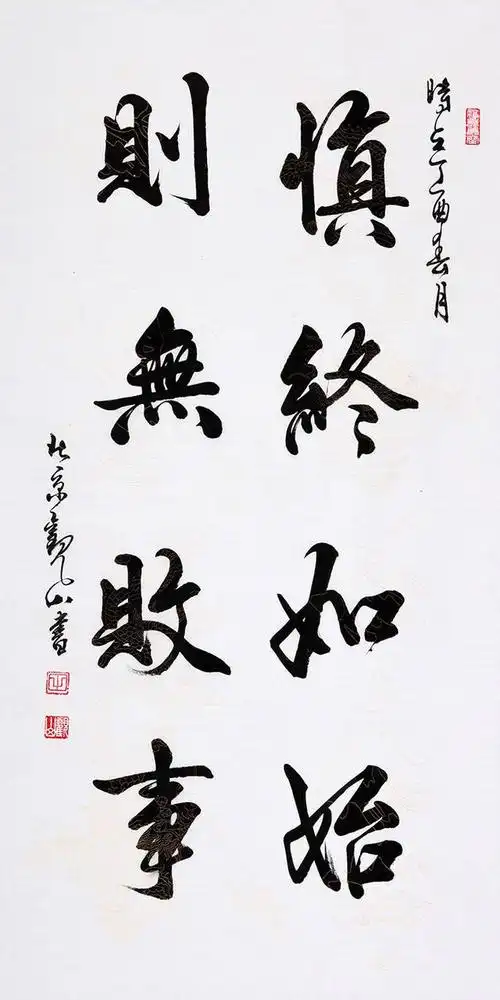 時在丁酉春月
慎終如始
則無敗事
北京觀山書
觀山